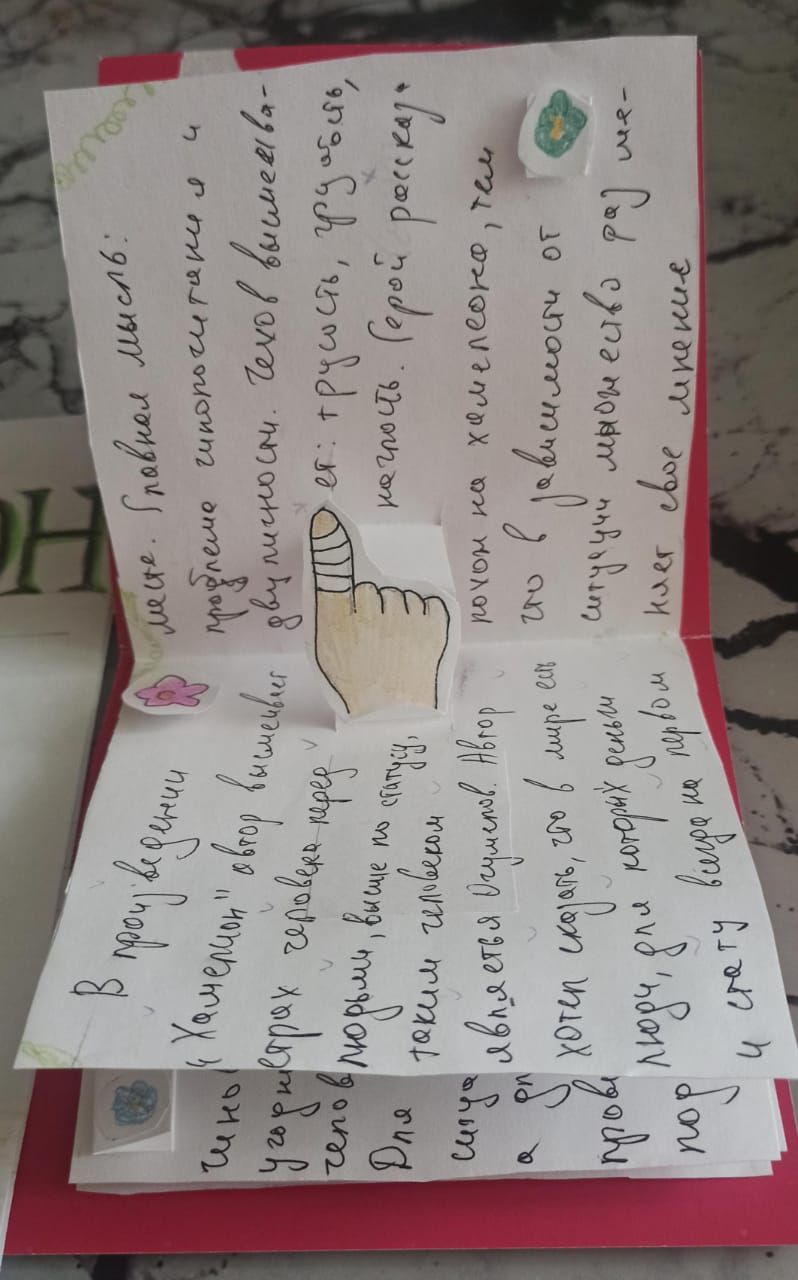 В произведении
„Хамелион" автор высмеивает
страх человека перед
людьми, выше по статусу,
таким человеком
является Очумелов. Автор
хотел сказать, что в мире есть
люди, для которых деньги
и стату всегда на первом
месте. Главная мысль:
проблема чинопочитания и
двуличности. Чехов высмеива-
ет: трусость, грубость,
наглость. Герой рассказа
похож на хамелеона, тем
что в зависимости от
ситуации множество раз ме-
няет свое мнение
чино
угодн
челов
Для
ситуа
а дл
пор
ОН